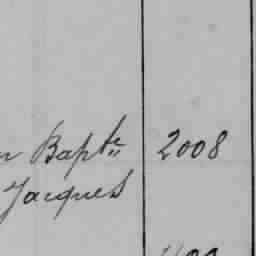 Bapte 2008
Jacques